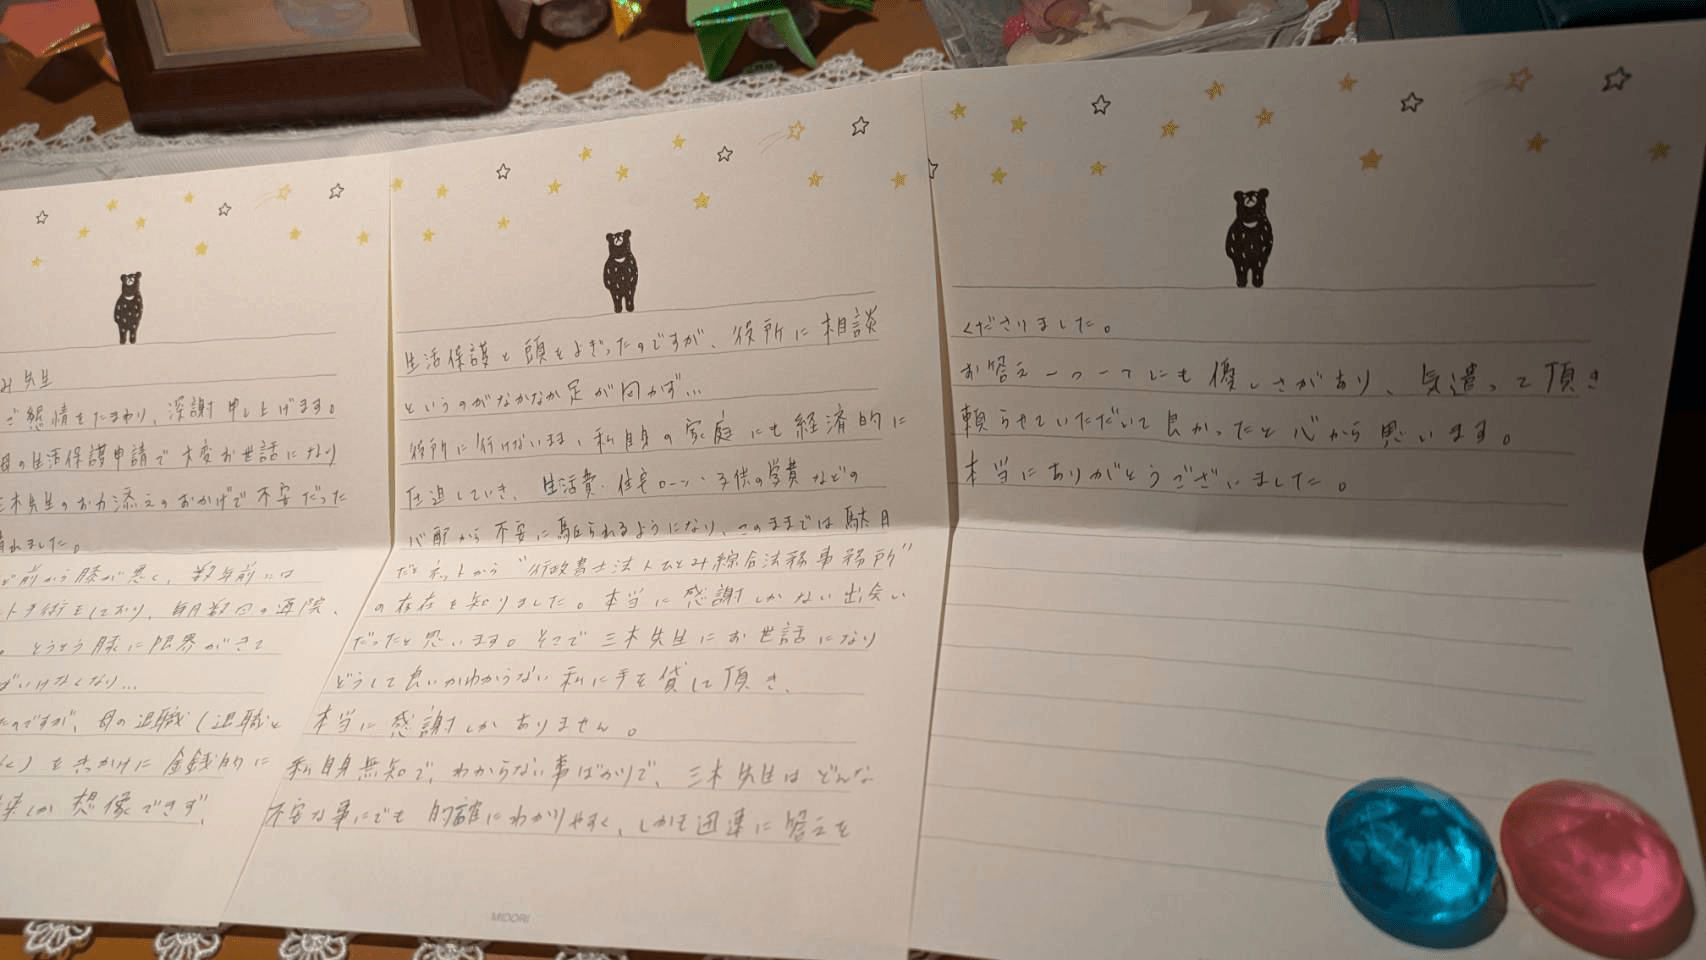 み先生
ご懇情をたまわり、深謝申し上げます。
母の生活保護申請で大変お世話になり
三木先生のお力添えのおかげで不安だった
晴れました。
前から膝が悪く、数年前には
ト手術をしており、毎月数回の通院、
。とうとう膝に限界がきて
ばいけなくなり…
たのですが、母の退職(退職と
)をきっかけに金銭的に
しか想像できず、
生活保護と頭をよぎったのですが、役所に相談
というのがなかなか足が向かず…
役所に行けないまま、私自身の家庭にも経済的に
圧迫していき、生活費・住宅ローン・子供の学費などの
心配から不安に駆られるようになり、このままでは駄目
だとネットから“行政書士法人ひとみ綜合法務事務所”
の存在を知りました。本当に感謝しかない出会い
だったと思います。そこで三木先生にお世話になり
どうして良いかわからない私に手を貸して頂き、
本当に感謝しかありません。
私自身無知で、わからない事ばかりで、三木先生はどんな
不安な事にでも的確にわかりやすく、しかも迅速に答えを
MIDORI
くださりました。
お答え一つ一つにも優しさがあり、気遣って頂き
頼らせていただいて良かったと心から思います。
本当にありがとうございました。